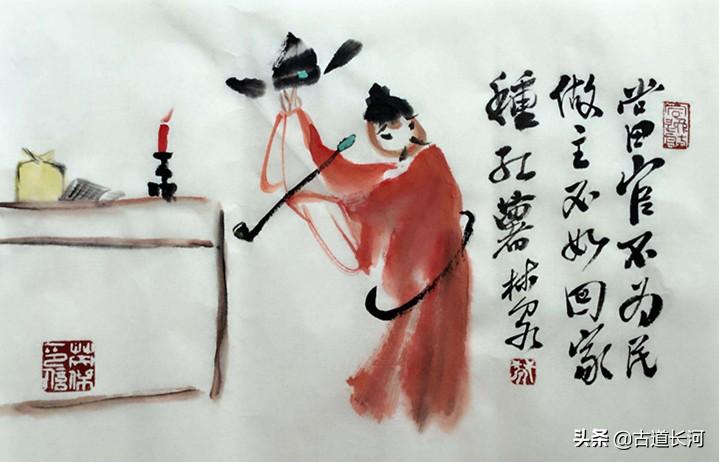 當官不为民
做主不如回家
種红薯 林泉
头条 @古道长河